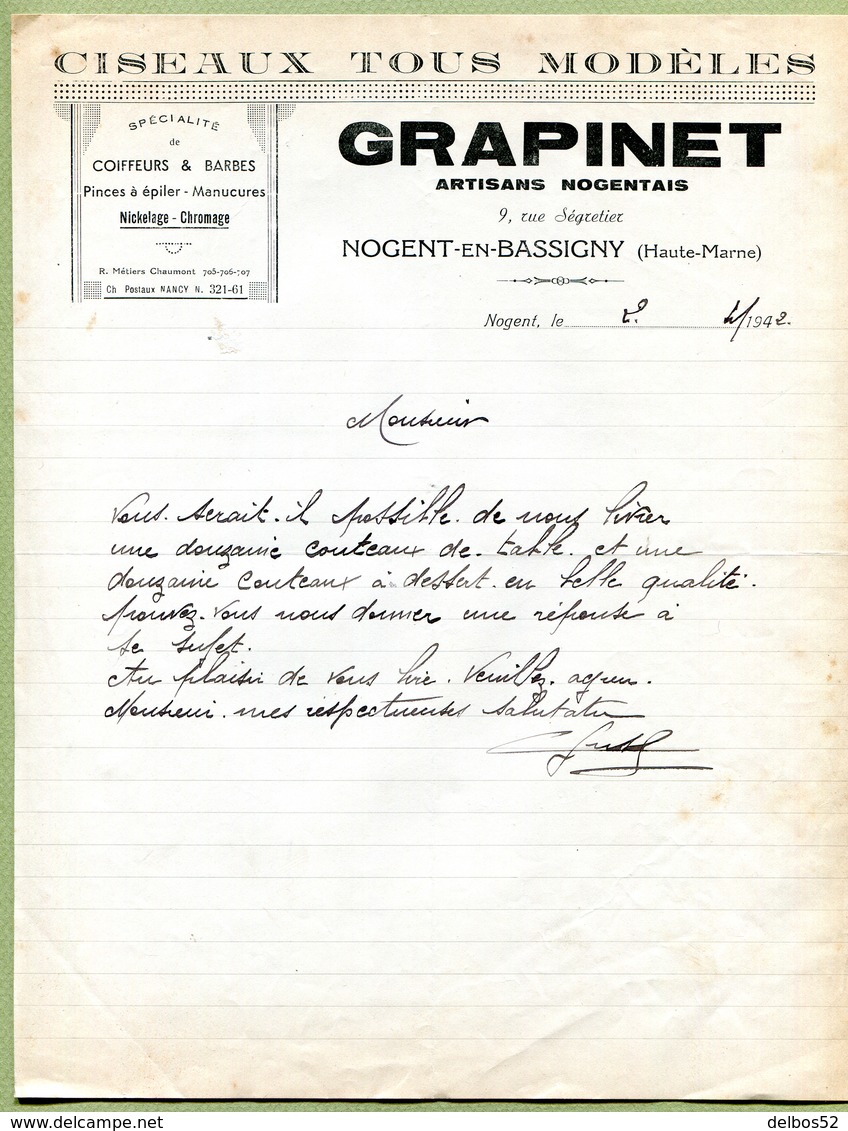 CISEAUX TOUS MODÈLES
SPÉCIALITÉ
de
COIFFEURS & BARBES
Pinces à épiler - Manucures
Nickelage - Chromage
R. Métiers Chaumont 705-706-707
Ch Postaux NANCY N. 321-61
GRAPINET
ARTISANS NOGENTAIS
9, rue Ségretier
NOGENT-EN-BASSIGNY (Haute-Marne)
Nogent, le 2. 4/1942.
Monsieur
Vous. serait-il possible. de nous livrer
une douzaine couteaux de. table. et une
douzaine couteaux à dessert. en belle qualité.
pouvez-vous nous donner une réponse à
se sujet.
Au plaisir de vous lire. Veuillez. agréer.
Monsieur. mes respectueuses salutations
www.delcampe.net
delbos52